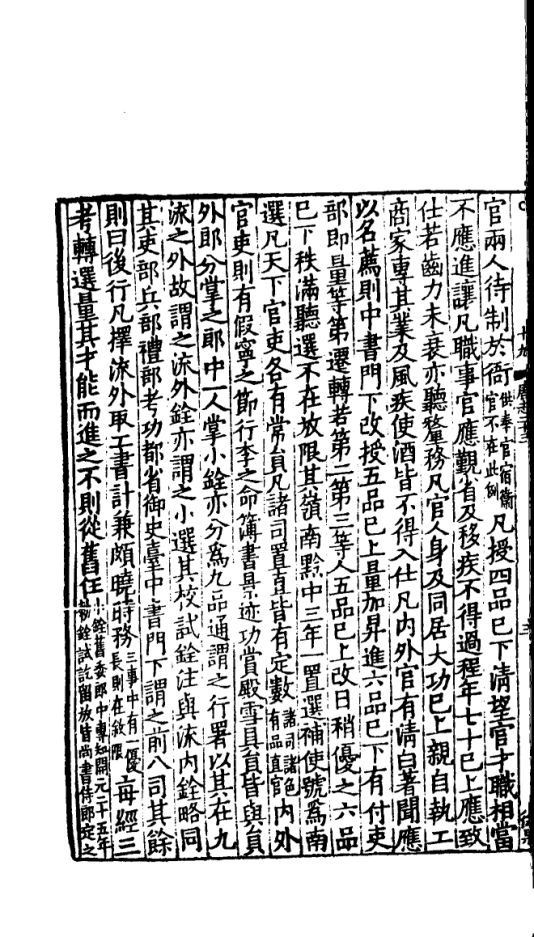 官兩人待制於衙供奉官宿衞官不在此例凡授四品已下淸望官才職相當
不應進讓凡職事官應覲省及移疾不得過程年七十已上應致
仕若齒力未衰亦聽釐務凡官人身及同居大功已上親自執工
商家專其業及風疾使酒皆不得入仕凡內外官有淸白著聞應
以名薦則中書門下改授五品已上量加昇進六品已下有付吏
部即量等第遷轉若第二第三等人五品已上改日稍優之六品
已下秩滿聽選不在放限其嶺南黔中三年一置選補使號爲南
選凡天下官吏各有常員凡諸司置直皆有定數諸司諸色有品直官內外
官吏則有假寧之節行李之命簿書景迹功賞殿最具員皆與員
外郎分掌之郎中一人掌小銓亦分爲九品通謂之行署以其在九
流之外故謂之流外銓亦謂之小選其校試銓注與流內銓略同
其吏部兵部禮部考功都省御史臺中書門下謂之前八司其餘
則曰後行凡擇流外取工書計兼頗曉時務三事中有一優長則在敘限每經三
考轉選量其才能而進之不則從舊任小銓舊委郎中專知開元二十五年勑銓試訖留放皆尚書侍郎定之